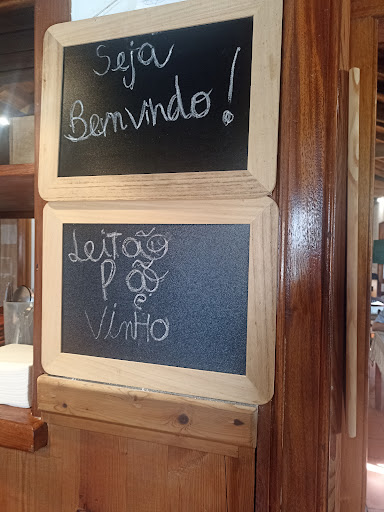 Seja
Bemvindo!
Leitão
Pão
e
Vinho